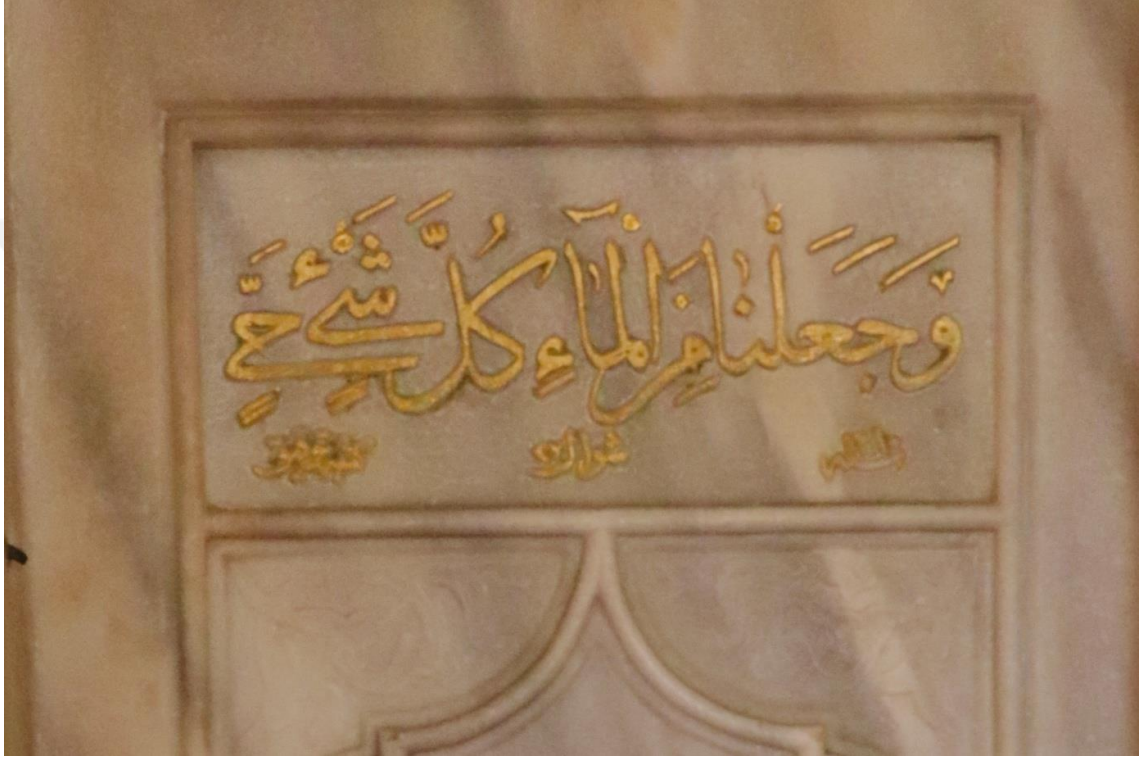 وَجَعَلْنَا مِنَ الْمَآءِ كُلَّ شَيْءٍ حَيٍّ